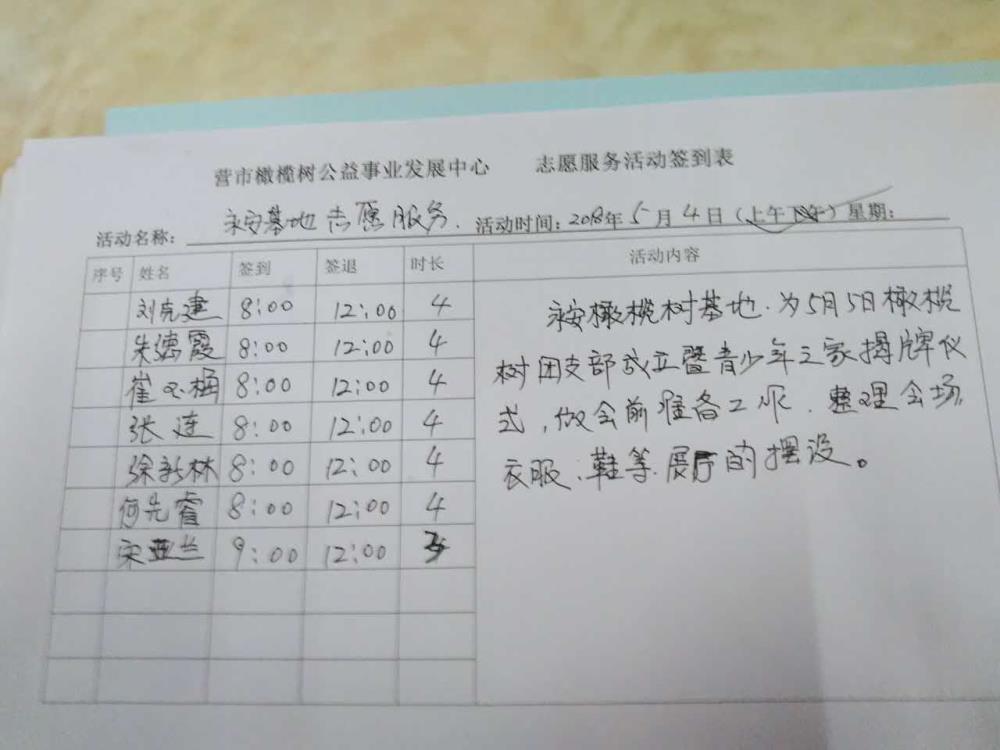 营市橄榄树公益事业发展中心 志愿服务活动签到表
活动名称: 永安基地志愿服务. 活动时间: 2018年5月4日(上午下午)星期:
序号 姓名 签到 签退 时长 活动内容
刘克建 8:00 12:00 4
朱德霞 8:00 12:00 4
崔玉梅 8:00 12:00 4
张连 8:00 12:00 4
徐新林 8:00 12:00 4
何先睿 8:00 12:00 4
宋亚兰 9:00 12:00 3
永安橄榄树基地.为5月5日橄榄
树团支部成立暨青少年之家揭牌仪
式,做会前准备工作.整理会场,
衣服、鞋等.展厅的摆设。